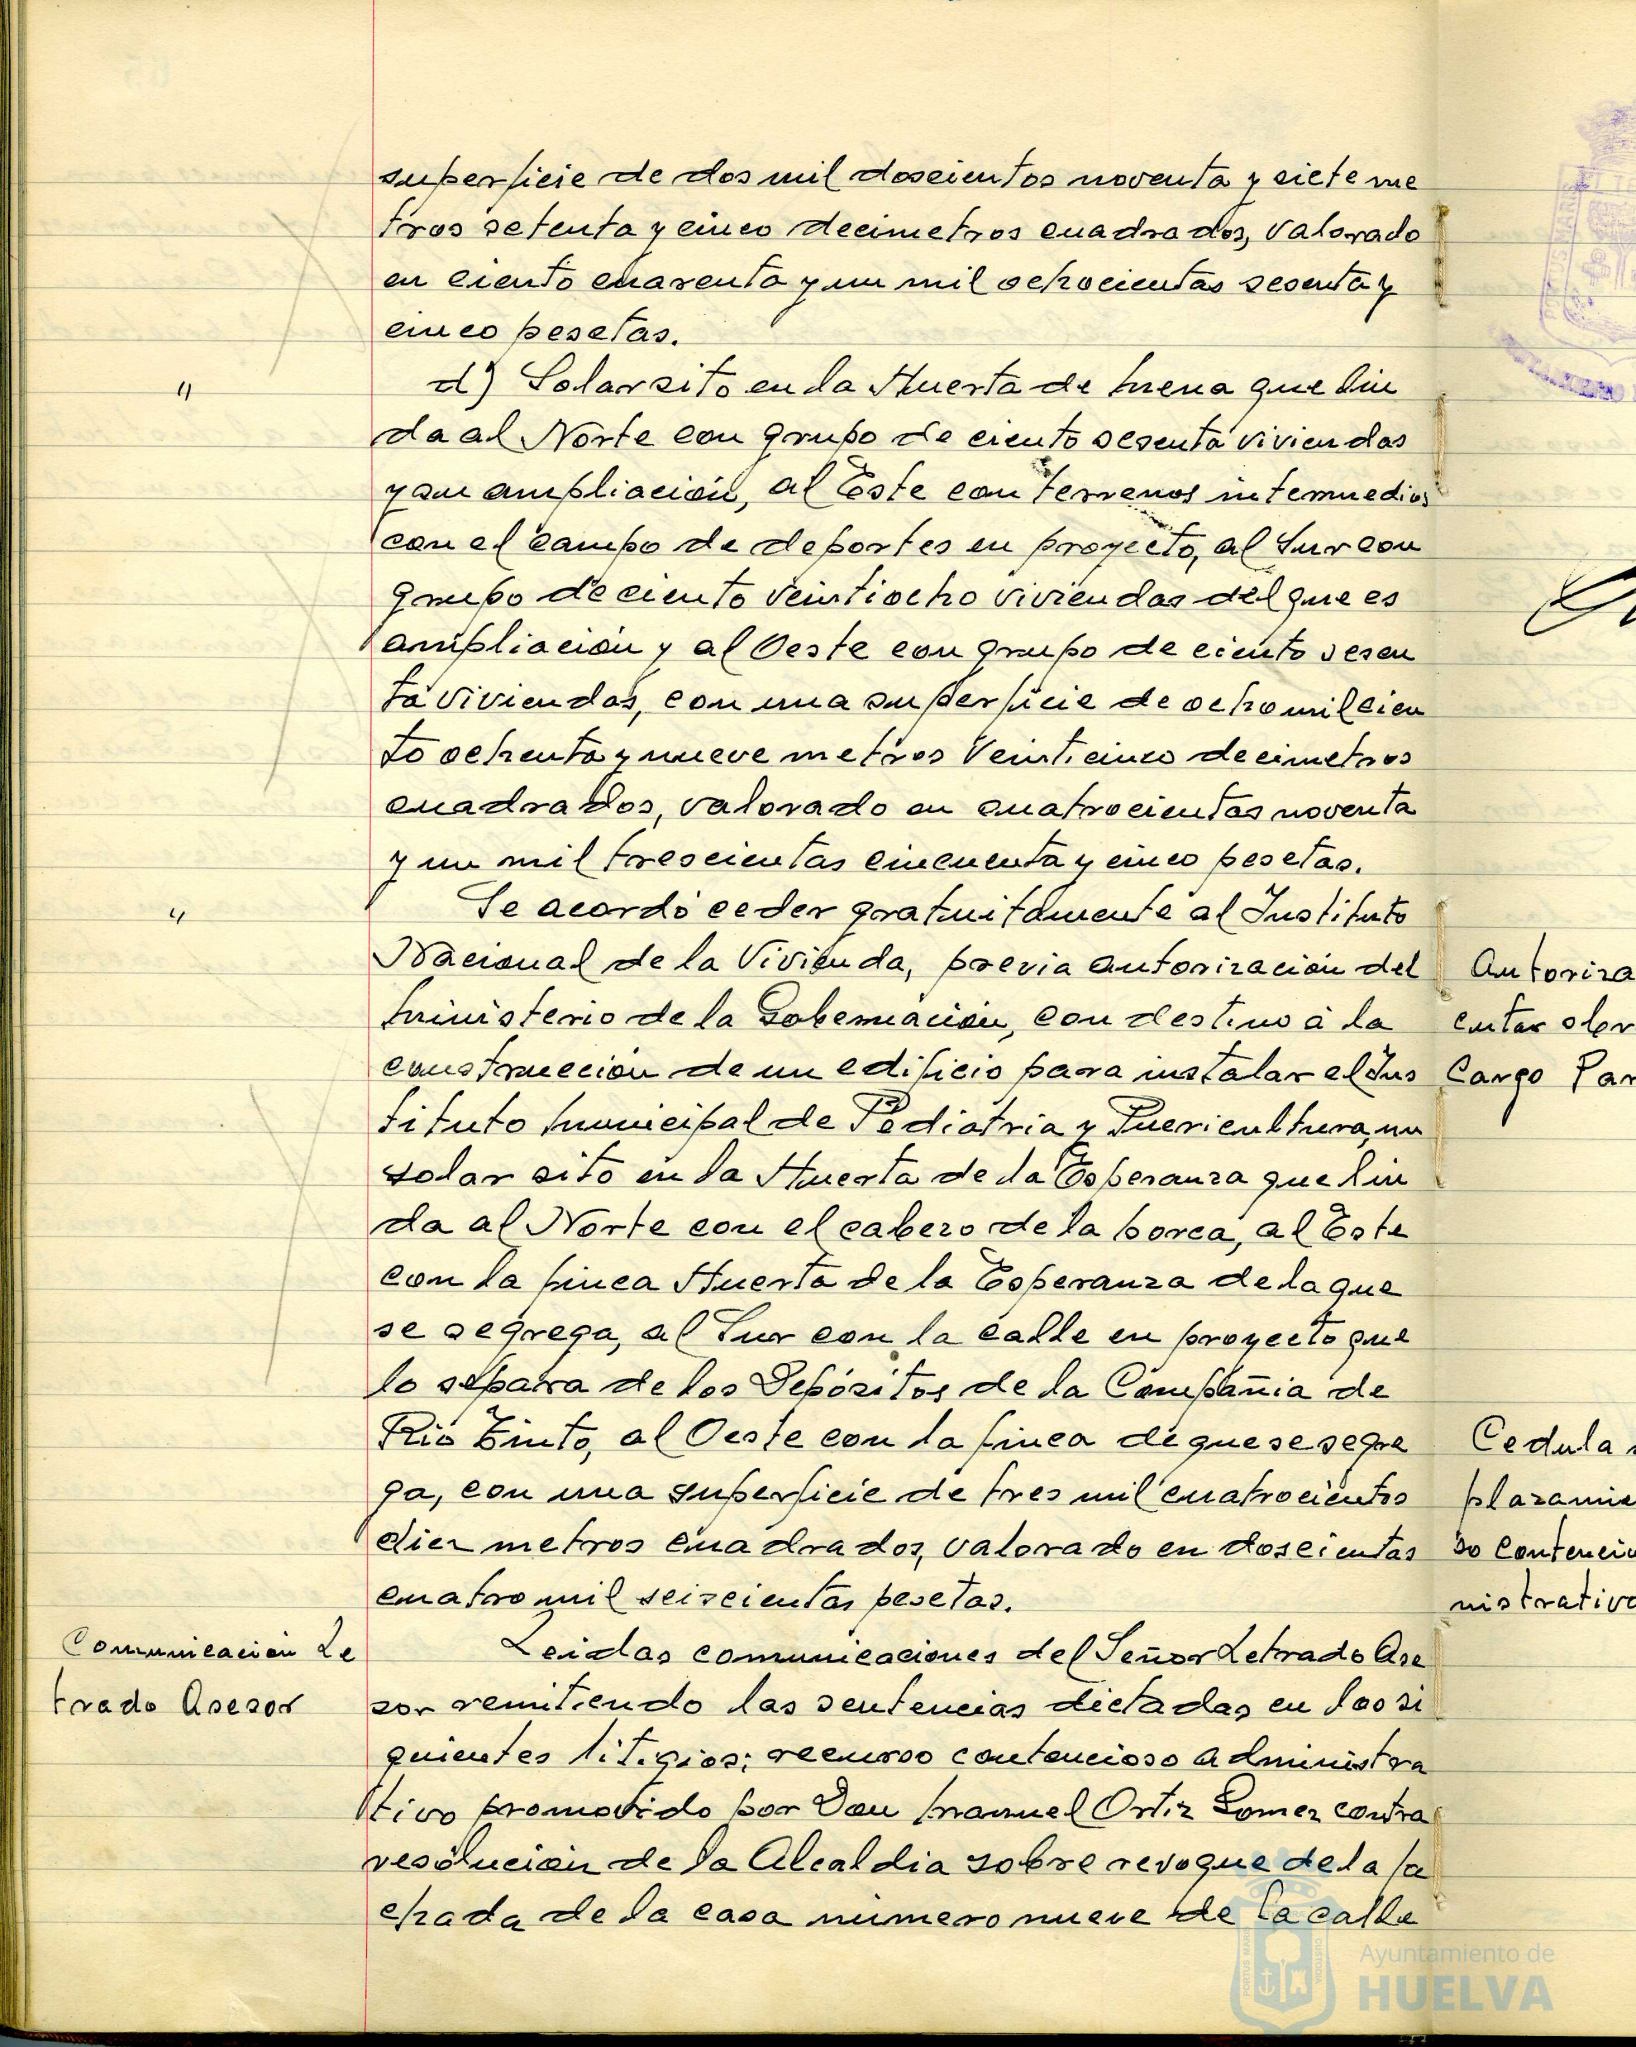 superficie de dos mil doscientos noventa y siete me
tros setenta y cinco decimetros cuadrados, valorado
en ciento cuarenta y un mil ochocientas sesenta y
cinco pesetas.
"
d) Solar sito en la Huerta de Mena que lin
da al Norte con grupo de ciento sesenta viviendas
y su ampliación, al Este con terrenos intermedios
con el campo de deportes en proyecto, al Sur con
grupo de ciento veintiocho viviendas del que es
ampliación y al Oeste con grupo de ciento sesen
ta viviendas, con una superficie de ocho mil cien
to ochenta y nueve metros veinticinco decimetros
cuadrados, valorado en cuatrocientas noventa
y un mil trescientas cincuenta y cinco pesetas.
"
Se acordó ceder gratuitamente al Instituto
Nacional de la Vivienda, previa autorización del
Ministerio de la Gobernación, con destino á la
construcción de un edificio para instalar el Ins
tituto Municipal de Pediatria y Puericultura, un
solar sito en la Huerta de la Esperanza que lin
da al Norte con el cabezo de la horca, al Este
con la finca Huerta de la Esperanza de la que
se segrega, al Sur con la calle en proyecto que
lo separa de los Depósitos de la Compañia de
Rio Tinto, al Oeste con la finca de que se segre
ga, con una superficie de tres mil cuatrocientos
diez metros cuadrados, valorado en doscientas
cuatro mil seiscientas pesetas.
Comunicación Le
trado Asesor
Leidas comunicaciones del Señor Letrado Ase
sor remitiendo las sentencias dictadas en los si
guientes litigios: recurso contencioso administra
tivo promovido por Don Manuel Ortiz Gomez contra
resolución de la Alcaldia sobre revoque de la fa
chada de la casa numero nueve de la calle
Autoriza
Cargo Par
Cedula
plazamie
so Contencio
nistrativo
Ayuntamiento de
HUELVA